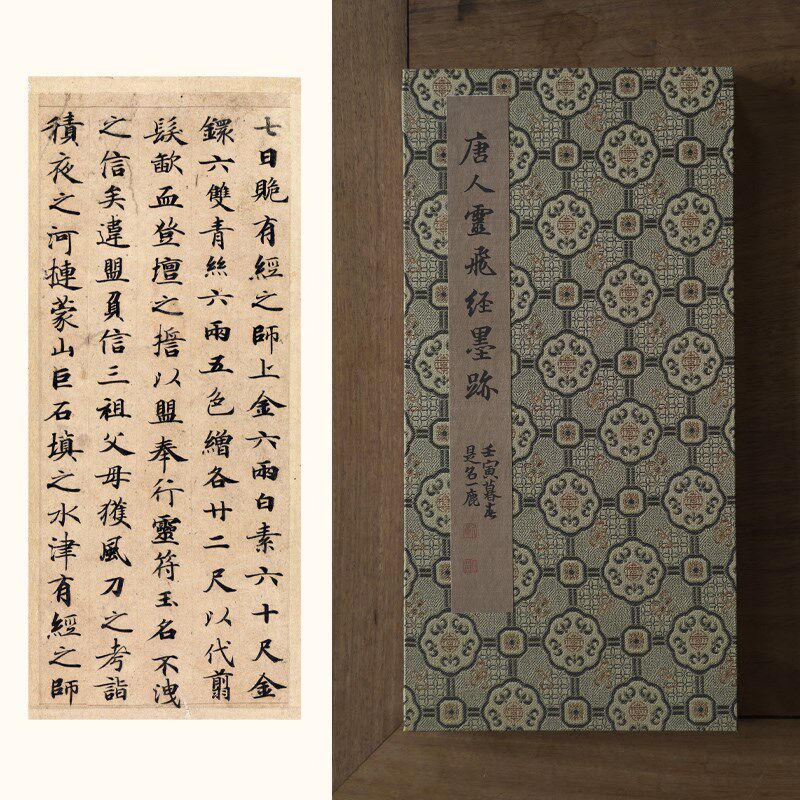 七日有經之師上金六兩白素六十尺金
鐶六雙青絲六兩五色繒各廿二尺以代翦
髮歃血登壇之以盟奉行靈符玉名不洩
之信矣違盟負信三祖父母獲風刀之考詣
積夜之河摙蒙山巨石填之水津有經之師
唐人靈飛经墨跡
壬寅暮春
是名一鹿